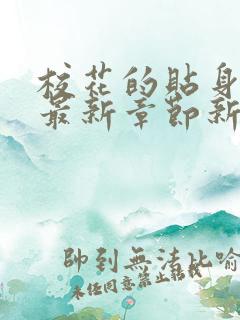 校花的貼身
最新章節新
帥到無法比喻
未经同意禁止转载